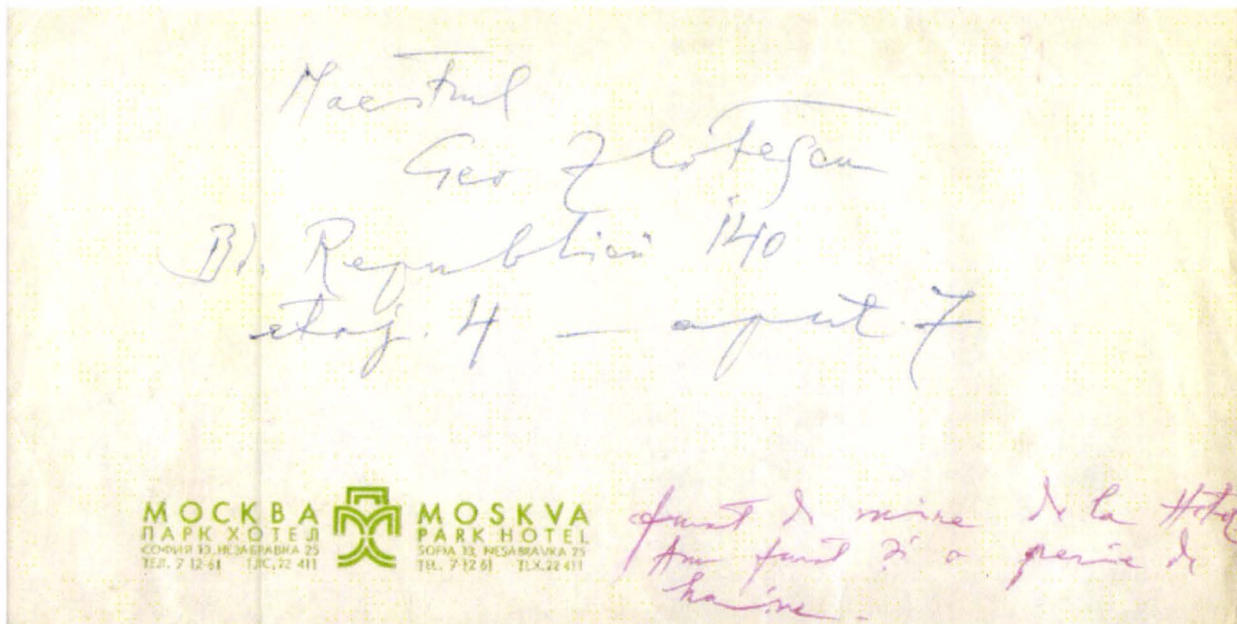 Maestrul
Geo Zlotescu
Bl. Republicii 140
etaj. 4 — apart. 7
МОСКВА
ПАРК ХОТЕЛ
СОФИЯ 13, НЕЗАБРАВКА 25
ТЕЛ. 7-12-61 ТЛС. 22 411
MOSKVA
PARK HOTEL
SOFIA 13, NESABRAVKA 25
TEL. 7-12-61 TLX. 22 411
furat de mine de la Hotel
Am furat și o perie de
haine.